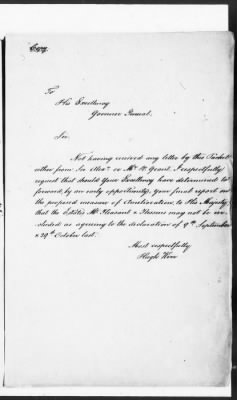 Copy
To
His Excellency
Governor Precoat.
Sir
Not having received any letter by this Packet
either from Sir Alexr or Mr W. Grant, I respectfully
request that should Your Excellency have determined to
forward, by an early opportunity, Your final report on
the proposed measure of Amelioration to His Majesty,
that the Estates Mt Pleasant & Reserve may not be in-
cluded as agreeing to the declaration of 9th September
& 29th October last.
Most respectfully
Hugh